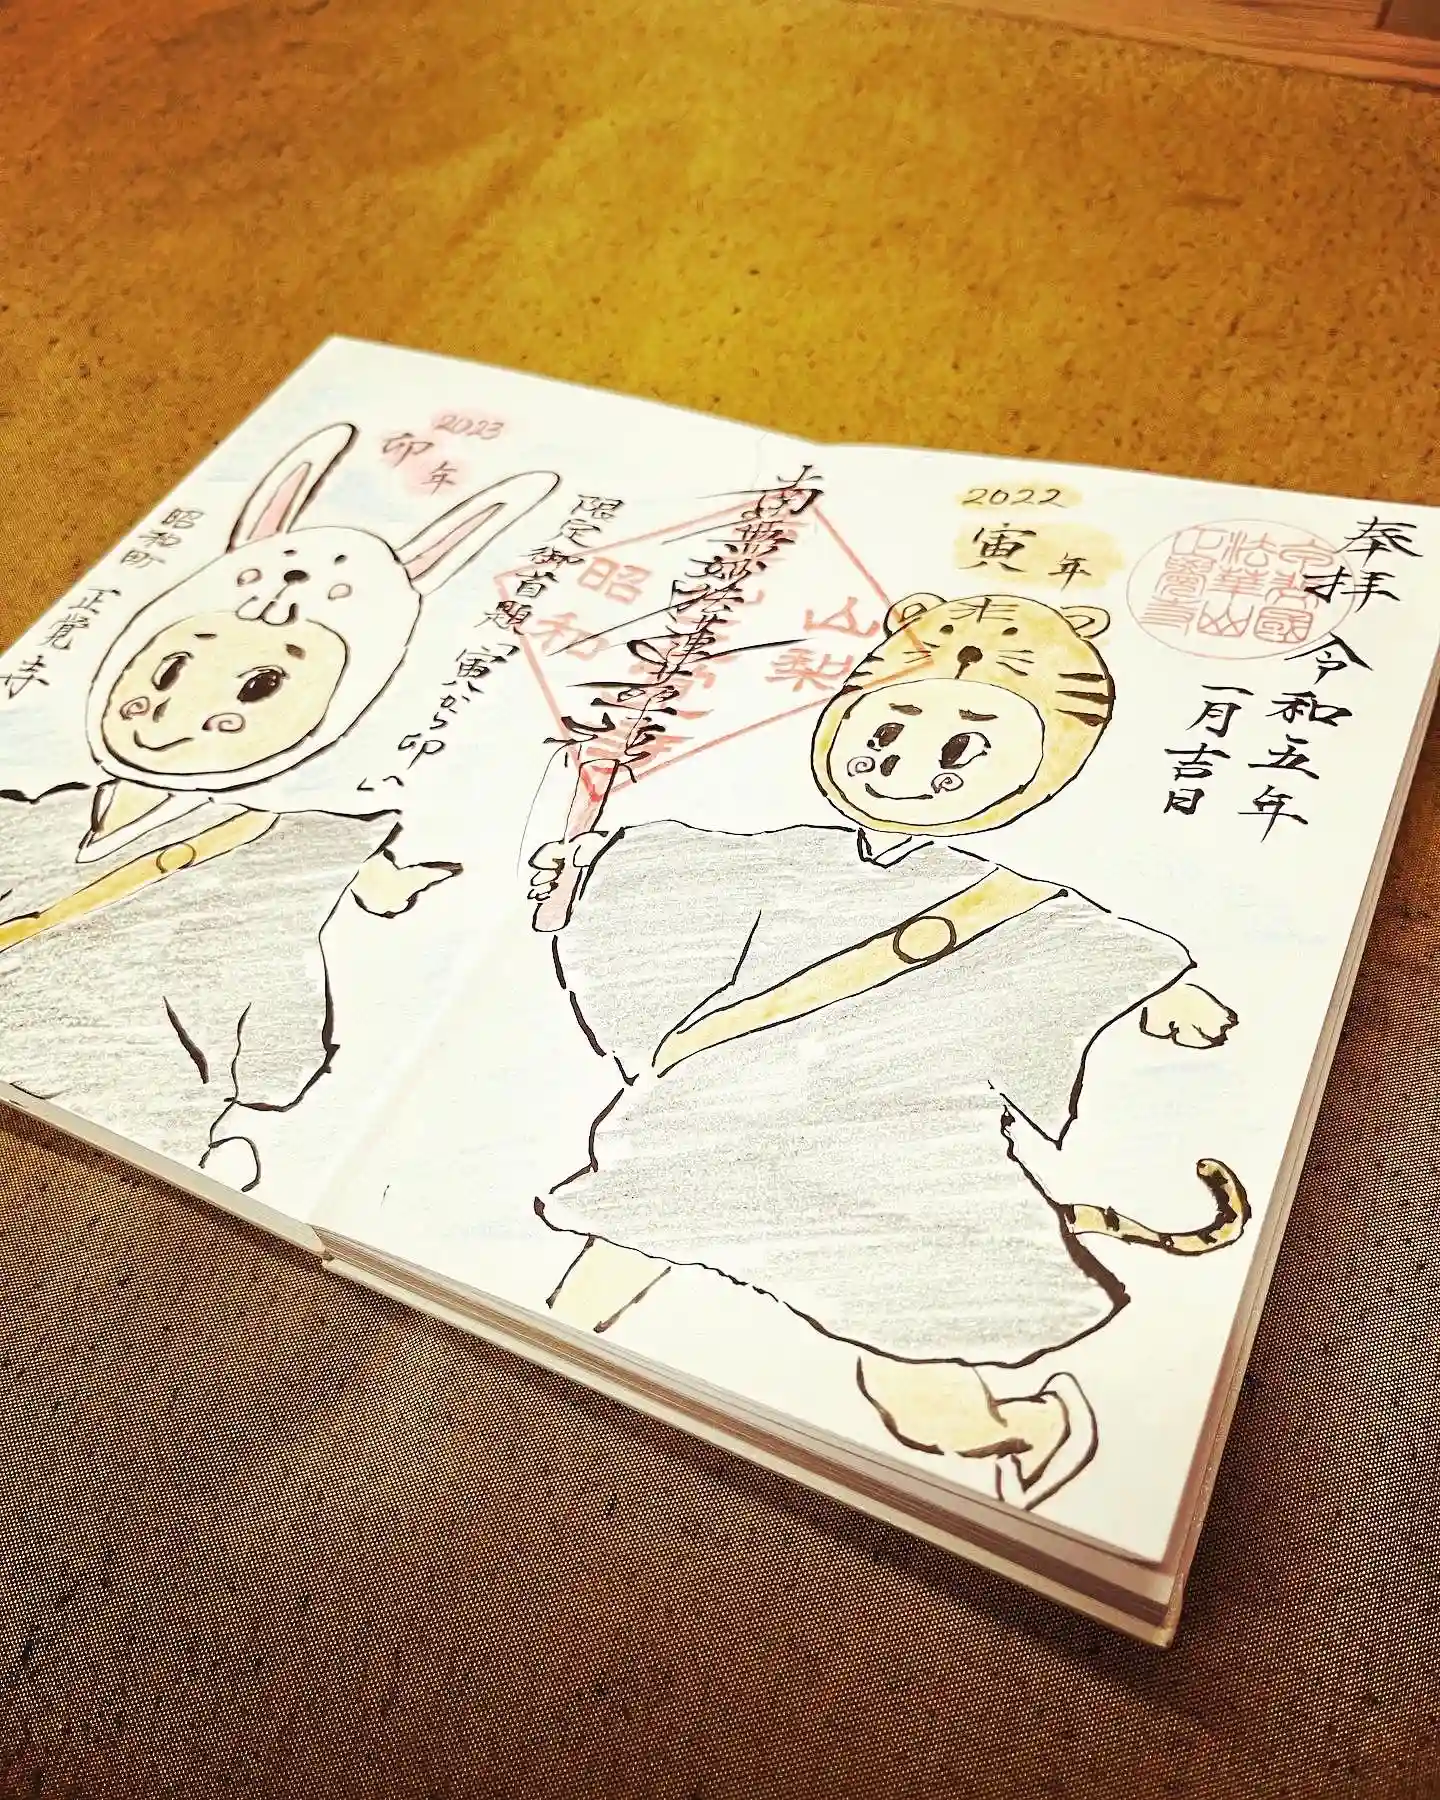 奉拝
令和五年
一月吉日
2022
寅年
南無妙法蓮華経
山梨
昭和
限定御首題「寅から卯へ」
2023
卯年
昭和町 正覚寺